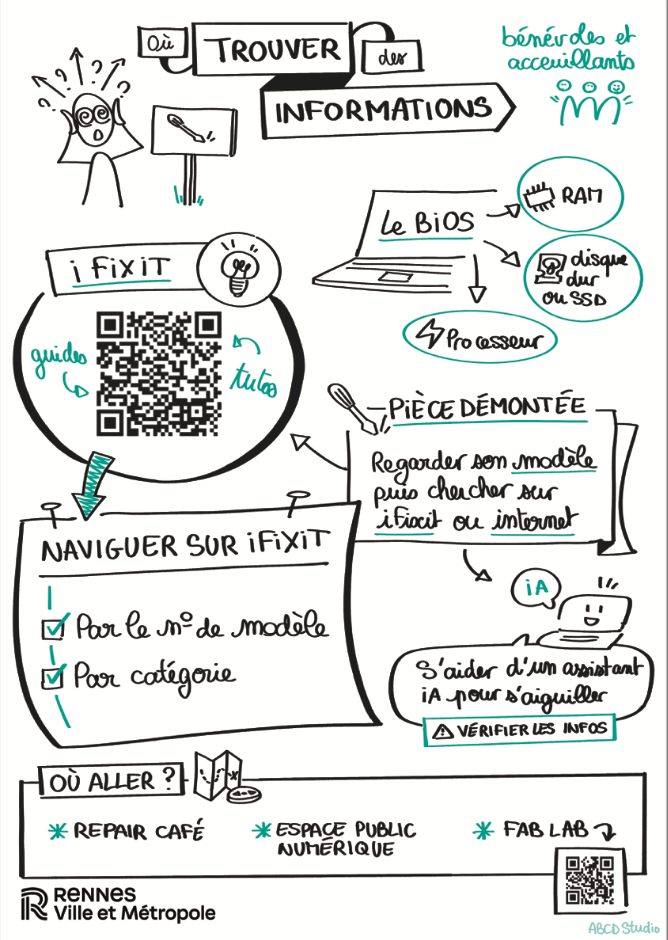 Où
TROUVER
des
INFORMATIONS
bénévoles et
acceuillants
i FIXIT
guides
tutos
Le BiOS
RAM
disque
dur
ou SSD
Processeur
PIÈCE DÉMONTÉE
Regarder son modèle
puis chercher sur
iFixit ou internet
NAVIGUER SUR iFIXIT
Par le n° de modèle
Par catégorie
iA
S'aider d'un assistant
iA pour s'aiguiller
VÉRIFIER LES INFOS
OÙ ALLER ?
REPAIR CAFÉ
ESPACE PUBLIC
NUMÉRIQUE
FAB LAB
RENNES
Ville et Métropole
ABCD Studio